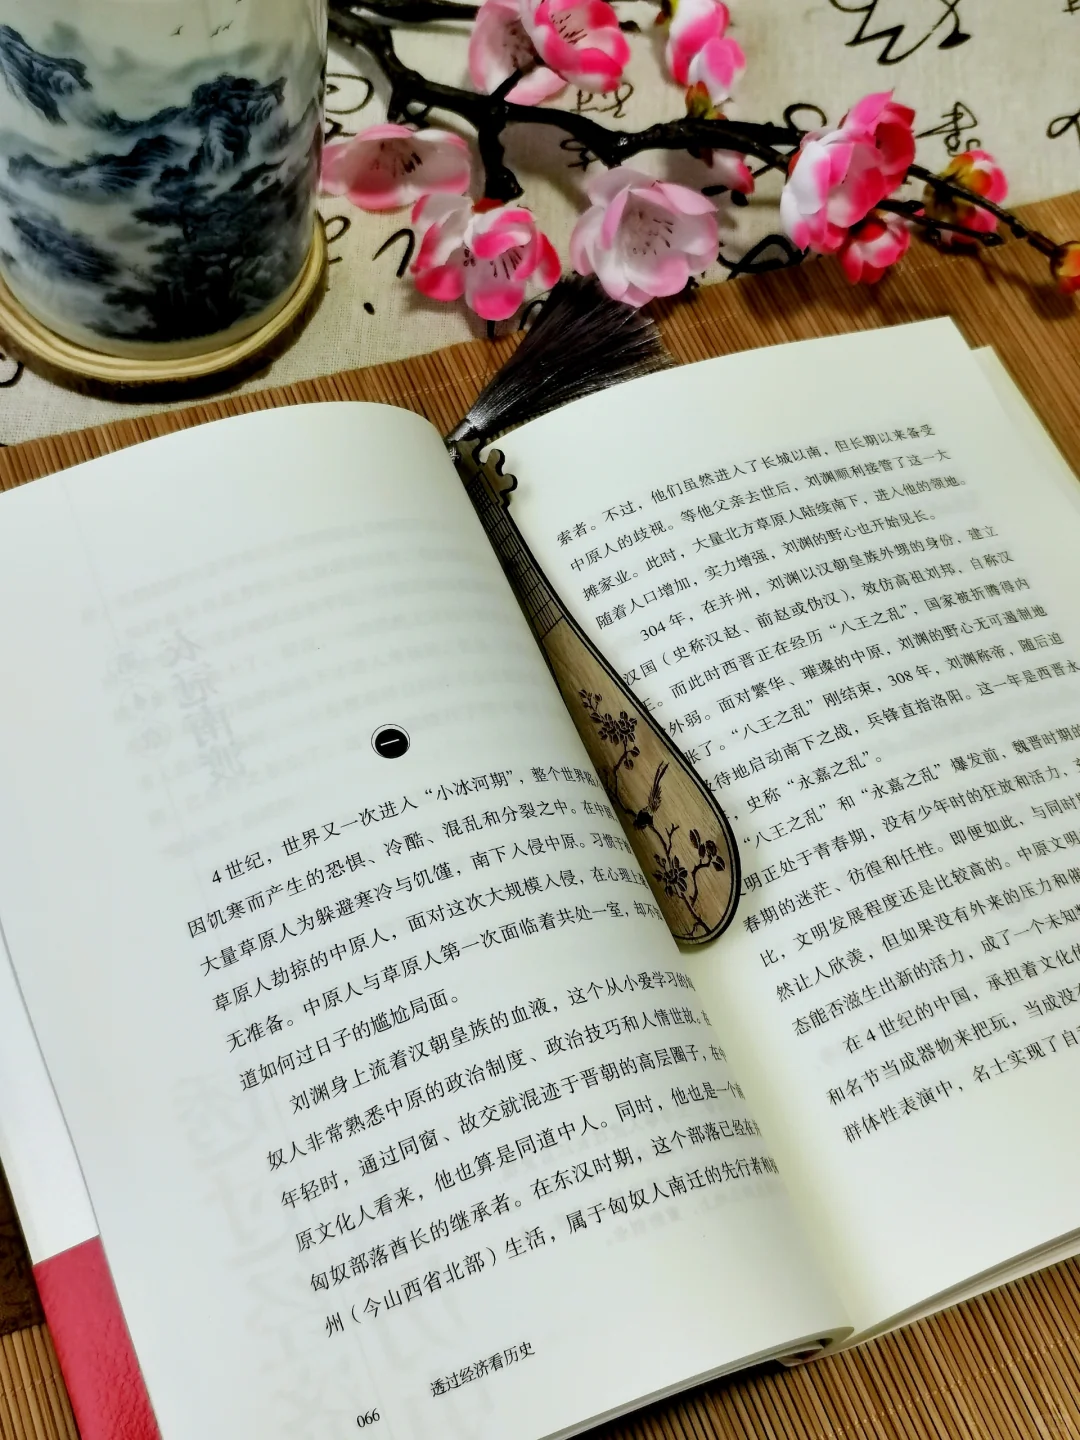 一
4世纪，世界又一次进入“小冰河期”，整个世界陷入
因饥寒而产生的恐惧、冷酷、混乱和分裂之中。在中
大量草原人为躲避寒冷与饥馑，南下入侵中原。习惯于
草原人劫掠的中原人，面对这次大规模入侵，在心理上
无准备。中原人与草原人第一次面临着共处一室，却不
道如何过日子的尴尬局面。
刘渊身上流着汉朝皇族的血液，这个从小爱学习的
奴人非常熟悉中原的政治制度、政治技巧和人情世故。在
年轻时，通过同窗、故交就混迹于晋朝的高层圈子，在
原文化人看来，他也算是同道中人。同时，他也是一个
匈奴部落酋长的继承者。在东汉时期，这个部落已经在
州（今山西省北部）生活，属于匈奴人南迁的先行者和
透过经济看历史
066
索者。不过，他们虽然进入了长城以南，但长期以来备受
中原人的歧视。等他父亲去世后，刘渊顺利接管了这一大
摊家业。此时，大量北方草原人陆续南下，进入他的领地。
随着人口增加，实力增强，刘渊的野心也开始见长。
304年，在并州，刘渊以汉朝皇族外甥的身份，建立
汉国（史称汉赵、前赵或伪汉），效仿高祖刘邦，自称汉
王。而此时西晋正在经历“八王之乱”，国家被折腾得内
外弱。面对繁华、璀璨的中原，刘渊的野心无可遏制地
张了。“八王之乱”刚结束，308年，刘渊称帝，随后迫
及待地启动南下之战，兵锋直指洛阳。这一年是西晋永
，史称“永嘉之乱”。
“八王之乱”和“永嘉之乱”爆发前，魏晋时期的
明正处于青春期，没有少年时的狂放和活力，
春期的迷茫、彷徨和任性。即便如此，与同时
比，文明发展程度还是比较高的。中原文明
然让人欣羡，但如果没有外来的压力和催
态能否滋生出新的活力，成了一个未知
在4世纪的中国，承担着文化
和名节当成器物来把玩，当成没
群体性表演中，名士实现了自